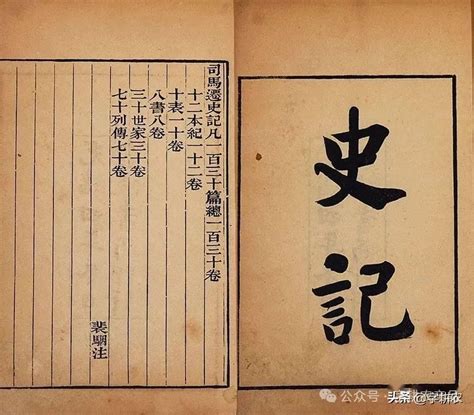 史記
司馬遷史記凡一百三十篇總一百三十卷
十二本紀一十二卷
十表一十卷
八書八卷
三十世家三十卷
七十列傳七十卷
裴駰注
公众号
头条 @字耕农